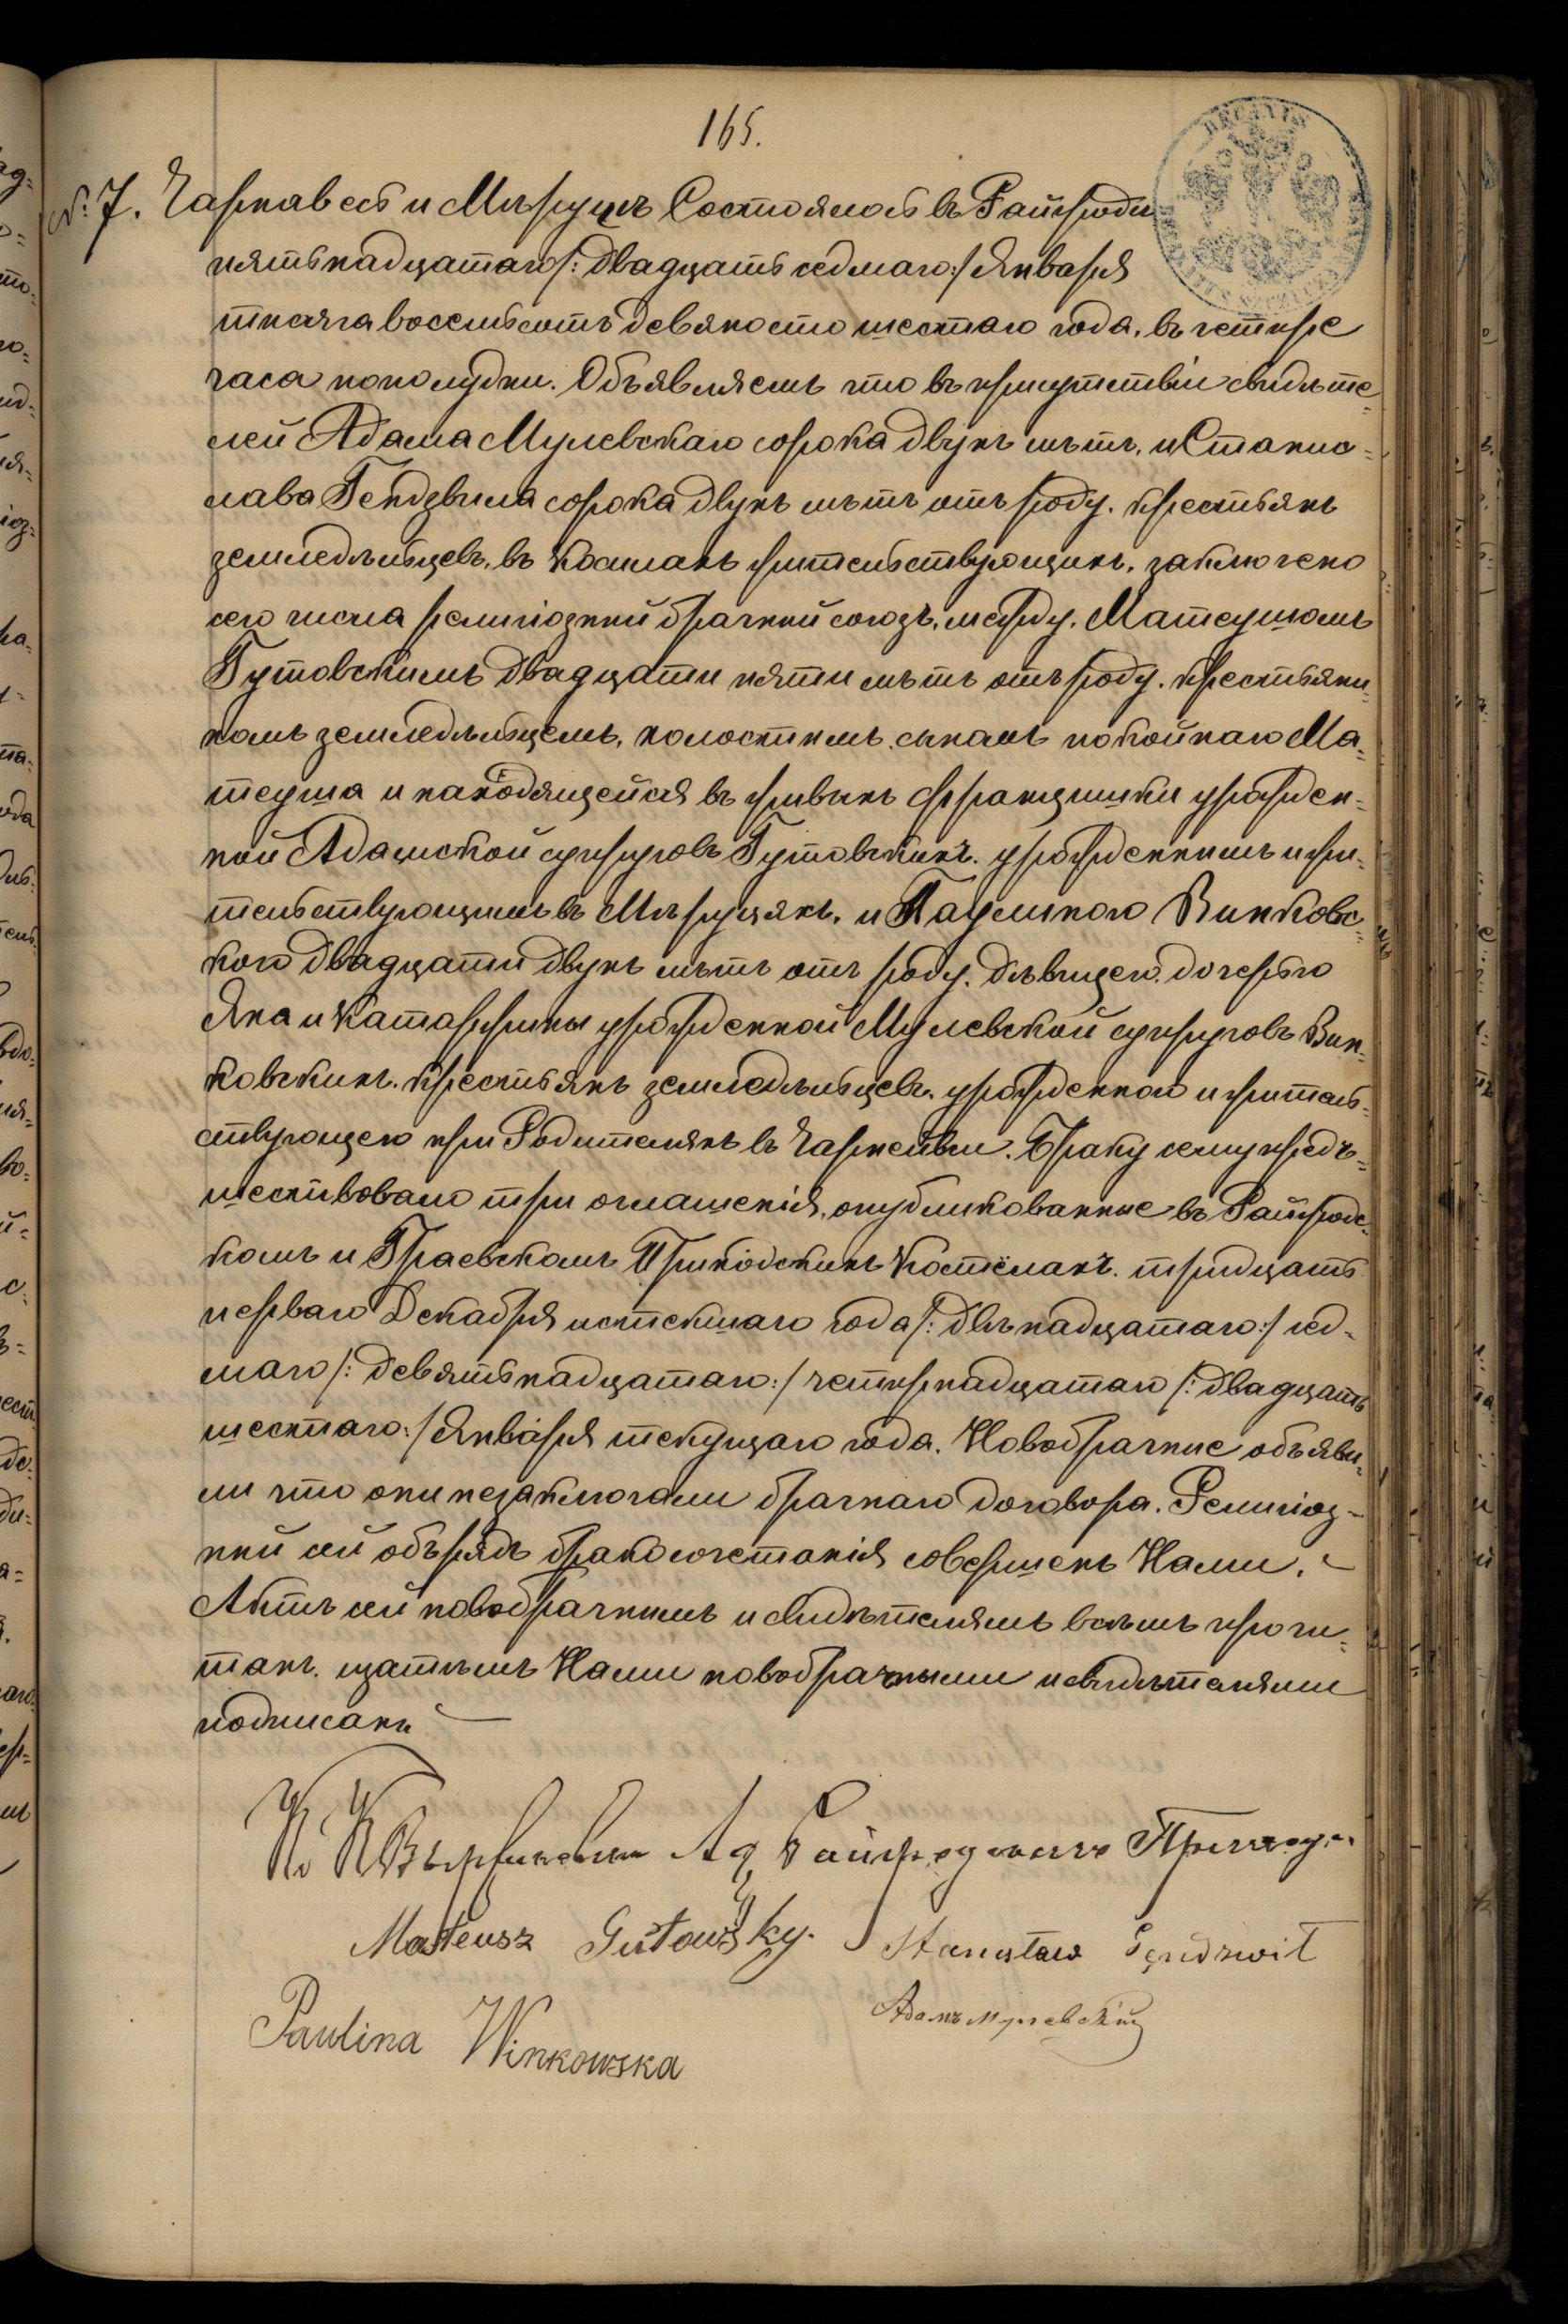 165.
№ 7. Чарнавесь и Мѣруцъ Состоялось въ Райгродѣ
пятьнадцатаго /: двадцать седмаго :/ Января
тысяча восемьсотъ девяносто шестаго года, въ четыре
часа пополудни. Объявляемъ что въ присутствіи свидѣте-
лей Адама Мулевскаго сорока двухъ лѣтъ, и Станис-
лава Гендзвила сорока двухъ лѣтъ отъ роду. крестьянъ
земледѣльцевъ, въ Космахъ жительствующихъ, заключено
сего числа религіозный брачный союзъ, между, Матеушомъ
Гутовскимъ двадцати пяти лѣтъ отъ роду. крестьяни-
номъ земледѣльцемъ, холостымъ, сыномъ покойнаго Ма-
теуша и находящейся въ живыхъ Францишки урожден-
ной Адамской супруговъ Гутовскихъ. урожденнымъ и жи-
тельствующимъ въ Мѣруцяхъ, и Паулиною Винковс-
кою двадцати двухъ лѣтъ отъ роду. дѣвицею. дочерью
Яна и Катаржины урожденной Мулевской супруговъ Вин-
ковскихъ. крестьянъ земледѣльцевъ. урожденною и житель-
ствующею при Родителяхъ въ Чарнейвси. Браку сему предъ-
шествовало три оглашенія, опубликованные въ Райгродс-
комъ и Граевскомъ Приходскихъ Костёлахъ. тридцать
перваго Декабря истекшаго года /: двѣнадцатаго :/ сед-
маго /: девятьнадцатаго :/ четырнадцатаго /: двадцать
шестаго :/ Января текущаго года. Новобрачные объяви-
ли что они незаключали брачнаго договора. Религіоз-
ный сей обърядъ бракосочетанія совершенъ Нами.
Актъ сей новобрачнымъ и свидѣтелямъ всѣмъ прочи-
танъ. щатѣмъ Нами новобрачными и свидѣтелями
подписанъ
Кс К Ад Райгродскаго Прихода
Mateusz Gutowsky. Stanisław Gendzwił
Адамъ Мулевскій
Paulina Winkowska